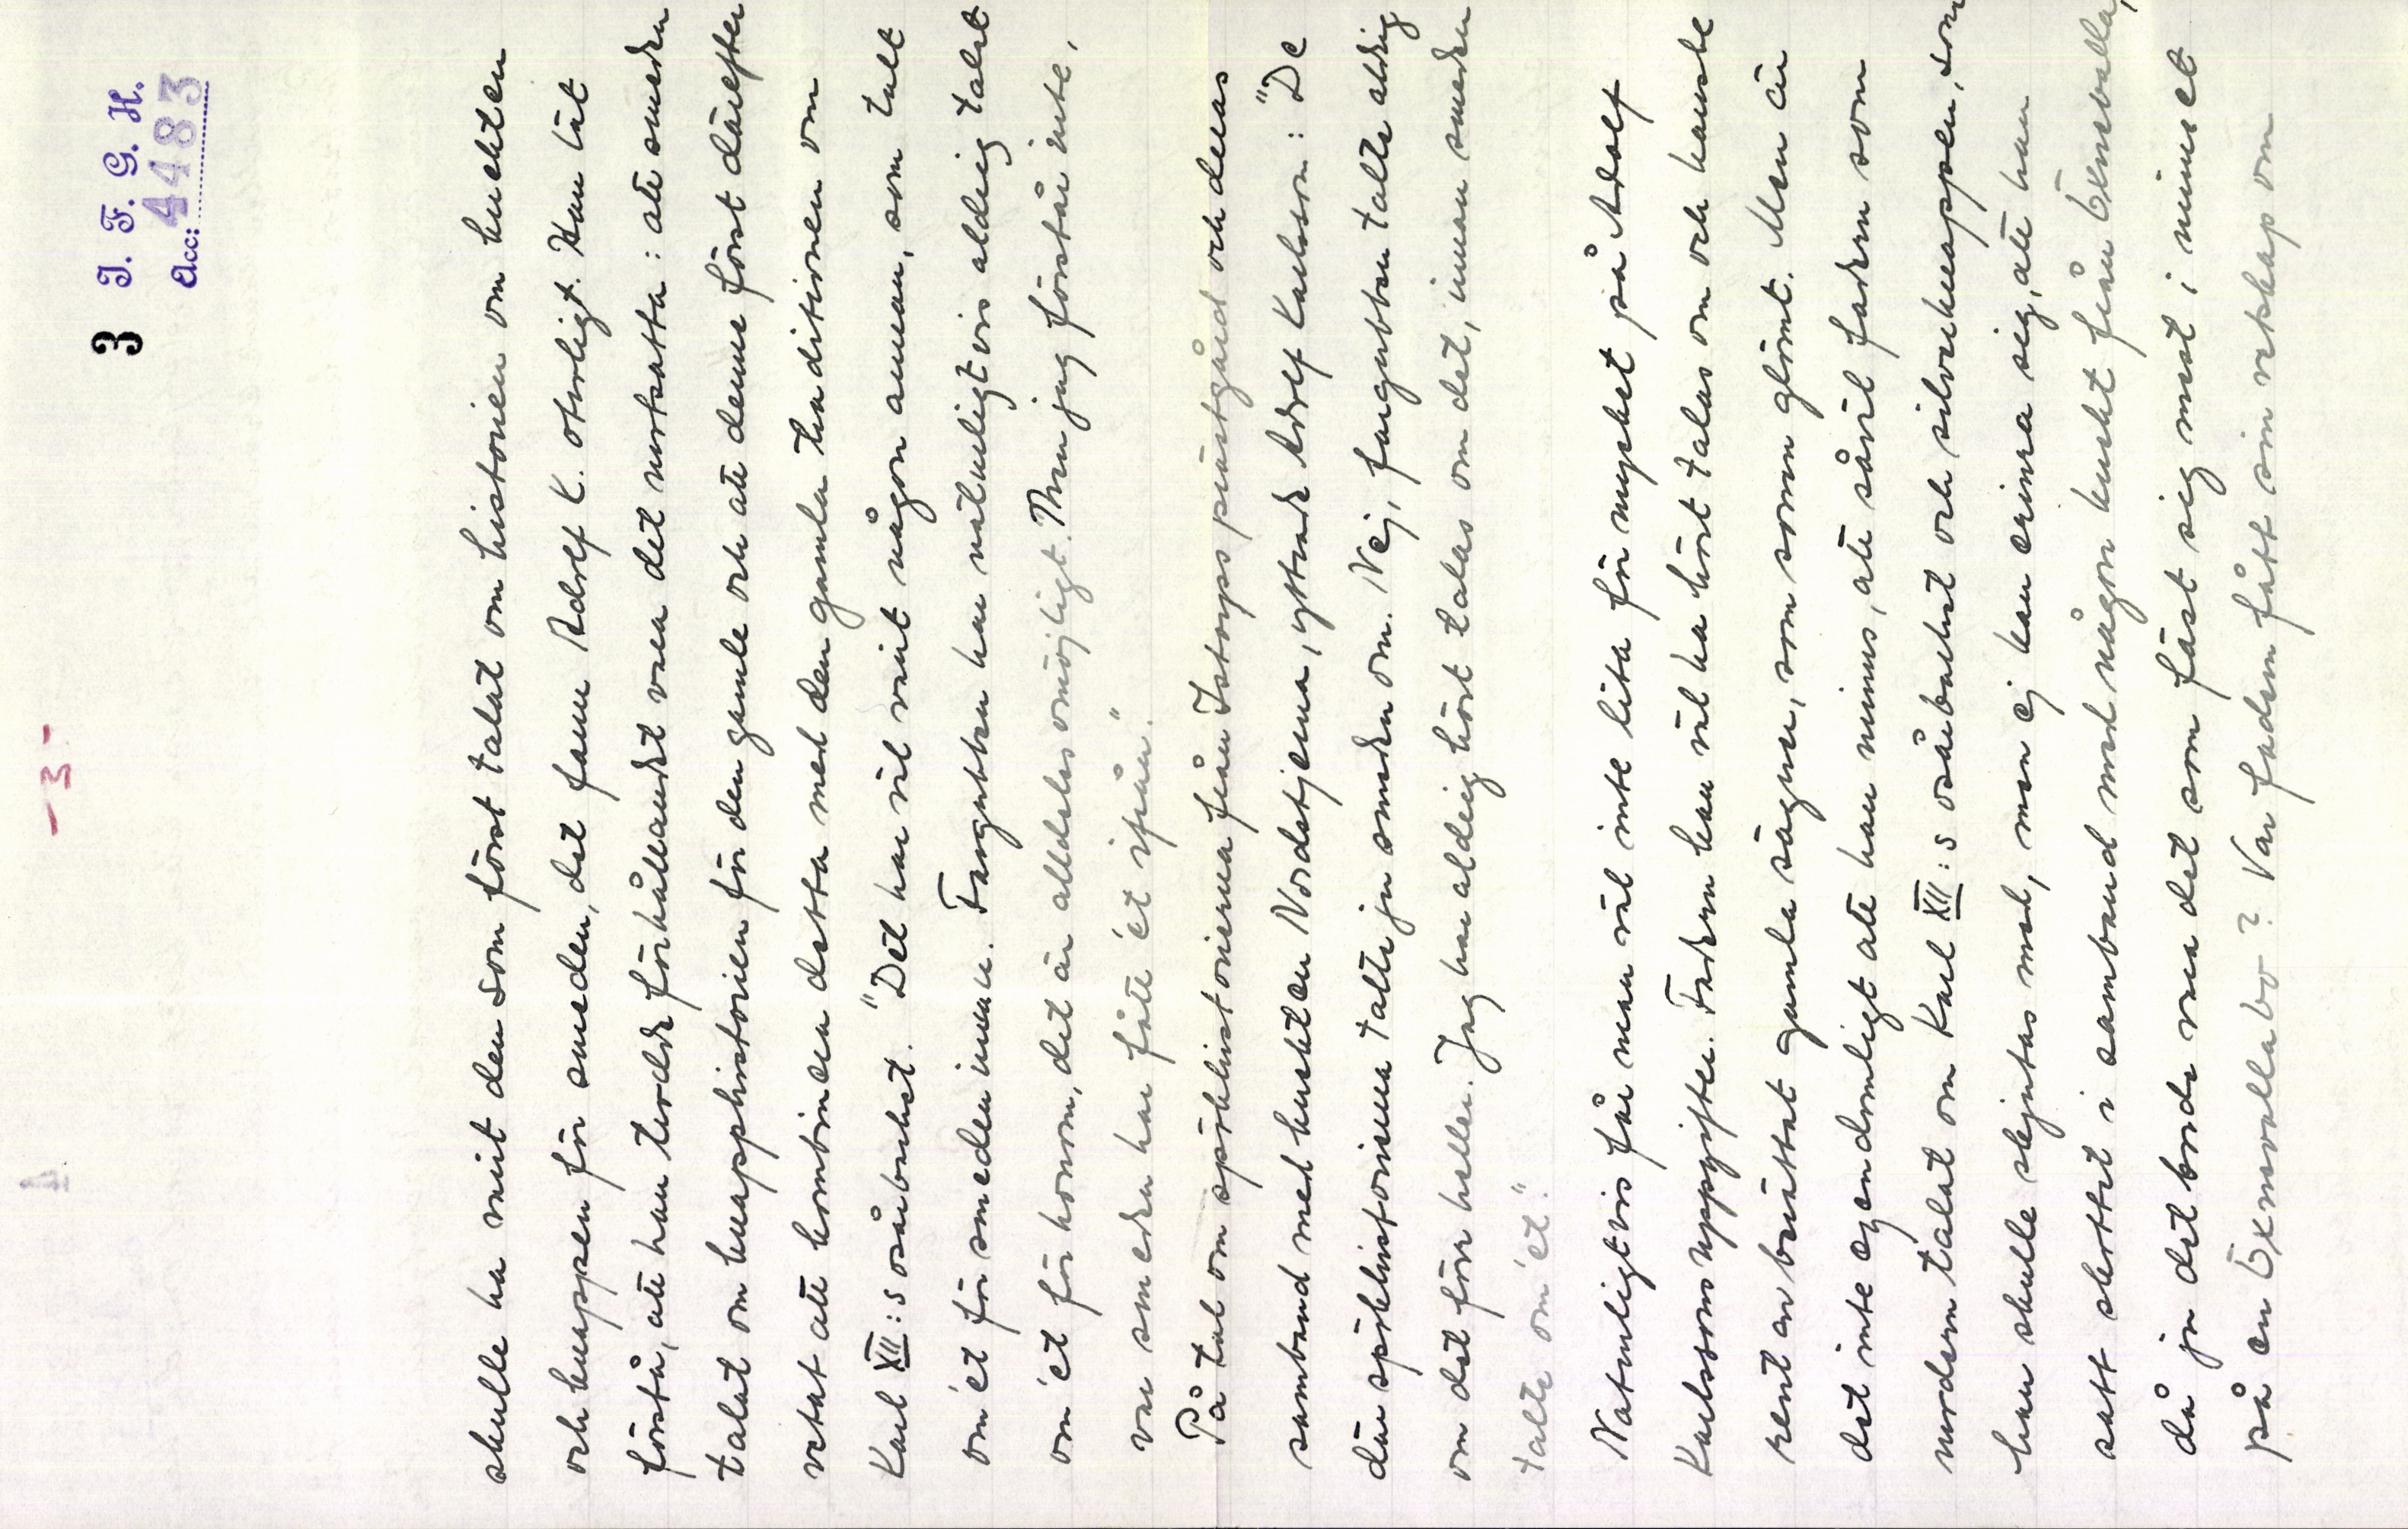 - 3 -
3
I. F. G. H.
Acc: 4483
skulle ha varit den som först talat om historien om kulten
och knappen för smeden, det fann Adolf K. otroligt. Han lät
förstå, att han trodde förhållandet vara det motsatta: att smeden
talat om knapphistorien för den gamle och att denne först därefter
vetat att kombinera detta med den gamla traditionen om
Karl XII:s osårbarhet. "Det har väl varit någon annan, som talt
om 'et för smeden innan. Fargubben har naturligtvis aldrig talet
om 'et för honom, det är alldeles omöjligt. Men jag förstår inte,
var smeden har fått 'et ifrån."
På tal om spökhistorierna från Istorps prästgård och deras
samband med kusken Nordstjerna, yttrade Adolf Karlsson: "De
där spökhistorierna talte ju smeden om. Nej, fargubben talte aldrig
om det förr heller. Jag har aldrig hört talas om det, innan smeden
talte om 'et."
Naturligtvis får man väl inte lita för mycket på Adolf
Karlssons uppgifter. Fadern kan väl ha hört talas om och kanske
rent av berättat gamla sägner, som sonen glömt. Men är
det inte egendomligt att han minns, att såväl fadern som
mordern talat om Karl XII:s osårbarhet och silverknappen, som
han skulle skjutas med, men ej kan erinra sig, att han
satt skottet i samband med någon kusk från Öxnevalla,
då ju det borde vara det som fäst sig mest i minnet
på en Öxnevallabo? Var fadern fått sin vetskap om